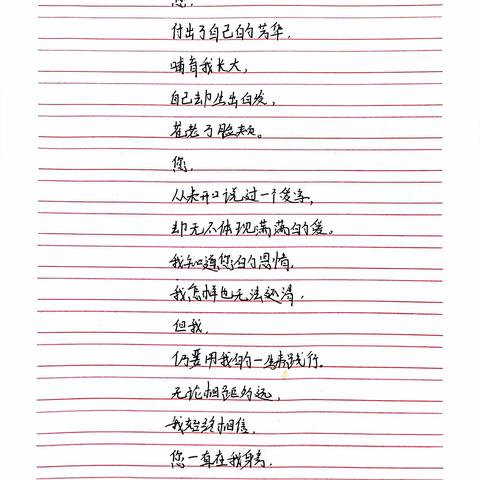 您，
付出了自己的芳华，
哺育我长大，
自己却生出白发，
苍老了脸颊。
您，
从未开口说过一个爱字，
却无不体现满满的爱。
我知道您的的恩情，
我怎样也无法还清，
但我，
仍要用我的一生践行。
无论相距多远，
我始终相信，
您一直在我身旁，